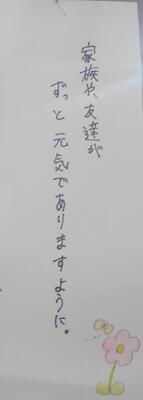 家族や、友達が
ずっと元気でありますように。